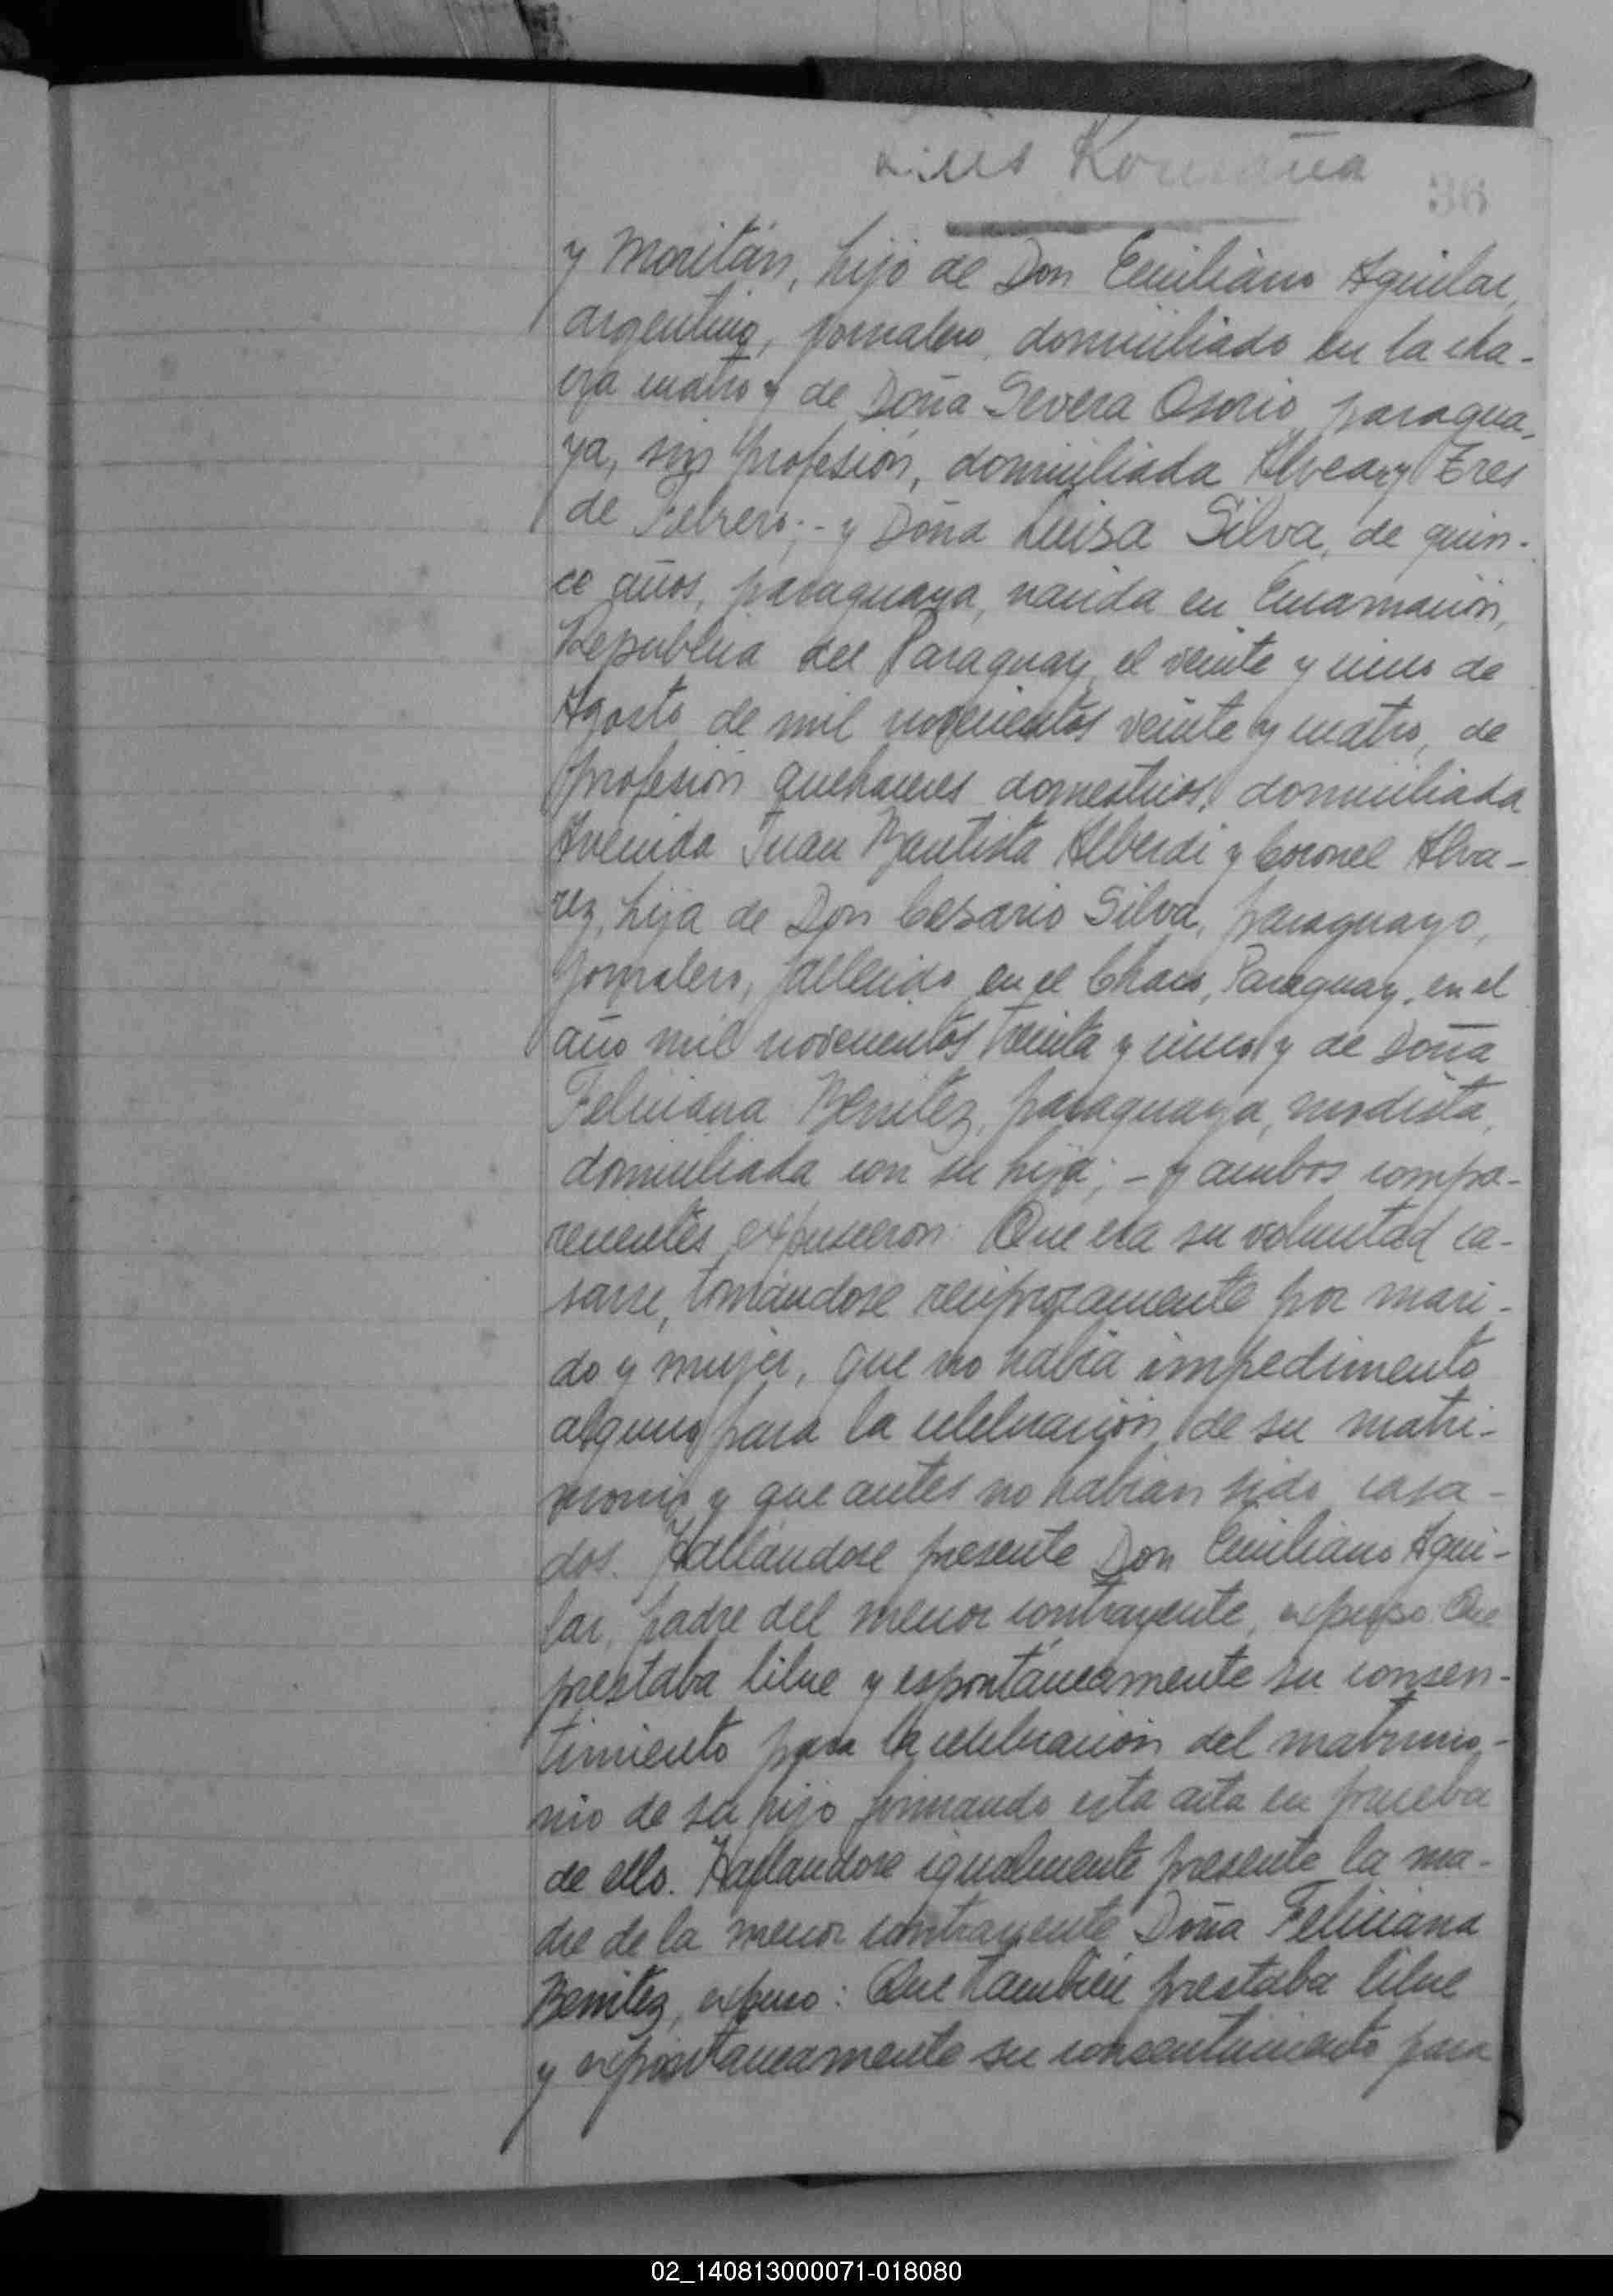 Luis Romaña
36
y Moritán, hijo de Don Emiliano Aguilar,
argentino, jornalero, domiciliado en la cha-
cra cuatro y de Doña Severa Osorio, paragua-
ya, sin profesión, domiciliada Alvear y Tres
de Febrero; - y Doña Luisa Silva, de quin-
ce años, paraguaya, nacida en Encarnación,
República del Paraguay, el veinte y cinco de
Agosto de mil novecientos veinte y cuatro, de
profesión quehaceres domesticos, domiciliada
Avenida Juan Bautista Alberdi y Coronel Alva-
rez, hija de Don Cesario Silva, paraguayo,
jornalero, fallecido en el Chaco, Paraguay, en el
año mil novecientos treinta y cinco y de Doña
Feliciana Benitez, paraguaya, modista,
domiciliada con su hija; - y ambos compa-
recientes expusieron: Que era su voluntad ca-
sarse, tomándose reciprocamente por mari-
do y mujer, que no habia impedimento
alguno para la celebración de su matri-
monio y que antes no habian sido casa-
dos. Hallándose presente Don Emiliano Agui-
lar, padre del menor contrayente, expuso: Que
prestaba libre y espontáneamente su consen-
timiento para la celebración del matrimo-
nio de su hijo firmando esta acta en prueba
de ello. Hallandose igualmente presente la ma-
dre de la menor contrayente Doña Feliciana
Benitez, expuso: Que tambien prestaba libre
y espontaneamente su consentimiento para
02_140813000071-018080